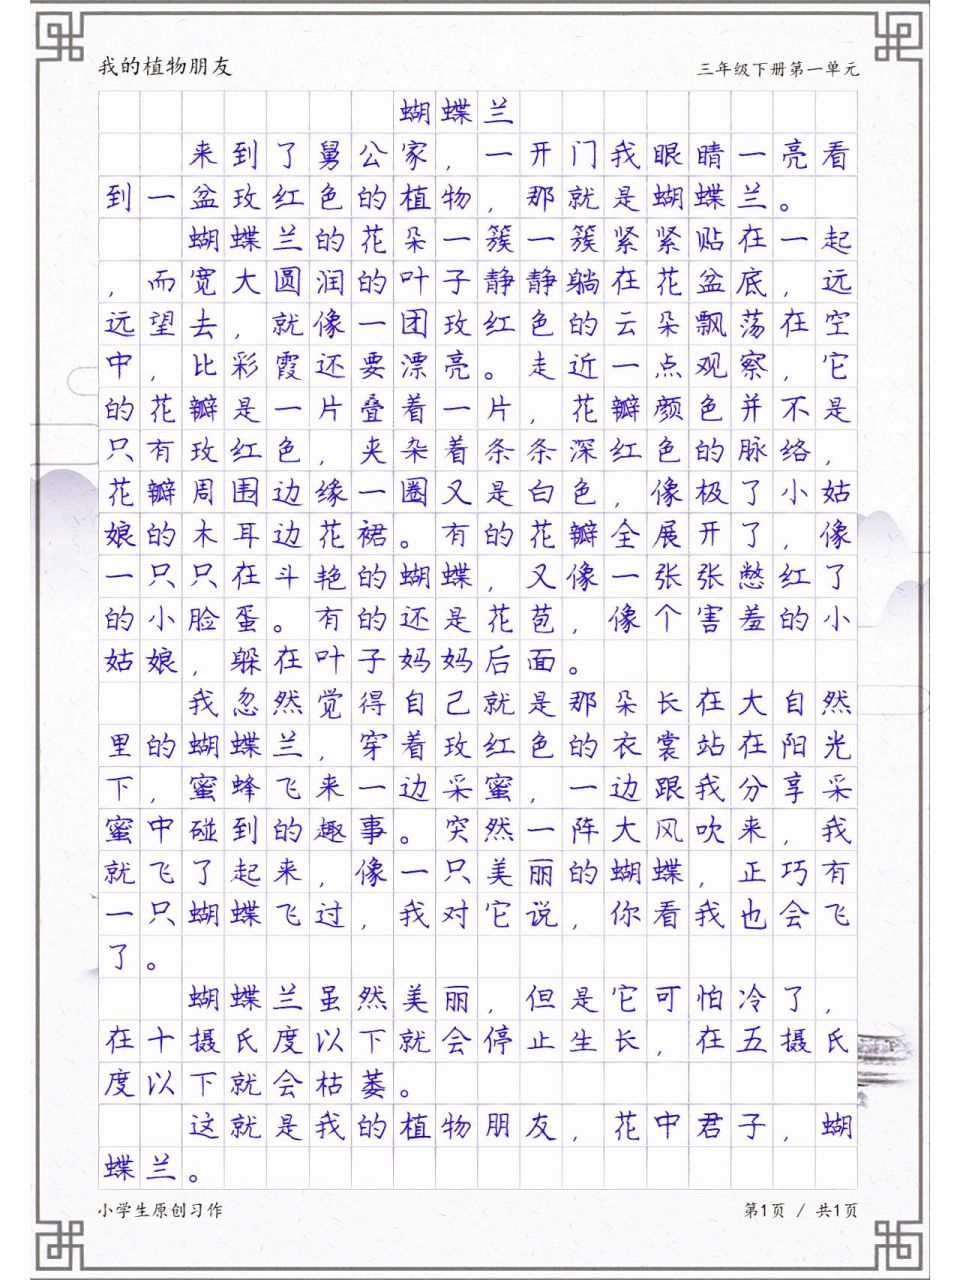 我的植物朋友
三年级下册第一单元
蝴蝶兰
来到了舅公家，一开门我眼睛一亮看
到一盆玫红色的植物，那就是蝴蝶兰。
蝴蝶兰的花朵一簇一簇紧紧贴在一起
，而宽大圆润的叶子静静躺在花盆底，远
远望去，就像一团玫红色的云朵飘荡在空
中，比彩霞还要漂亮。走近一点观察，它
的花瓣是一片叠着一片，花瓣颜色并不是
只有玫红色，夹杂着条条深红色的脉络，
花瓣周围边缘一圈又是白色，像极了小姑
娘的木耳边花裙。有的花瓣全展开了，像
一只只在斗艳的蝴蝶，又像一张张憋红了
的小脸蛋。有的还是花苞，像个害羞的小
姑娘，躲在叶子妈妈后面。
我忽然觉得自己就是那朵长在大自然
里的蝴蝶兰，穿着玫红色的衣裳站在阳光
下，蜜蜂飞来一边采蜜，一边跟我分享采
蜜中碰到的趣事。突然一阵大风吹来，我
就飞了起来，像一只美丽的蝴蝶，正巧有
一只蝴蝶飞过，我对它说，你看我也会飞
了。
蝴蝶兰虽然美丽，但是它可怕冷了，
在十摄氏度以下就会停止生长，在五摄氏
度以下就会枯萎。
这就是我的植物朋友，花中君子，蝴
蝶兰。
小学生原创习作
第1页 / 共1页